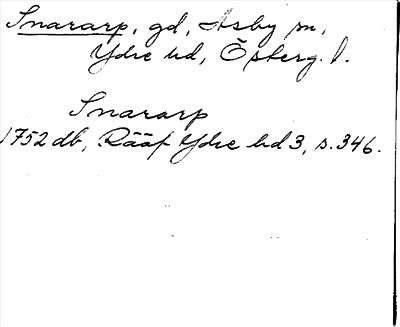 Snararp, gd, Asby sn,
Ydre hd, Östergl.
Snararp
1752 db, Rääf Ydre hd 3, s. 346.